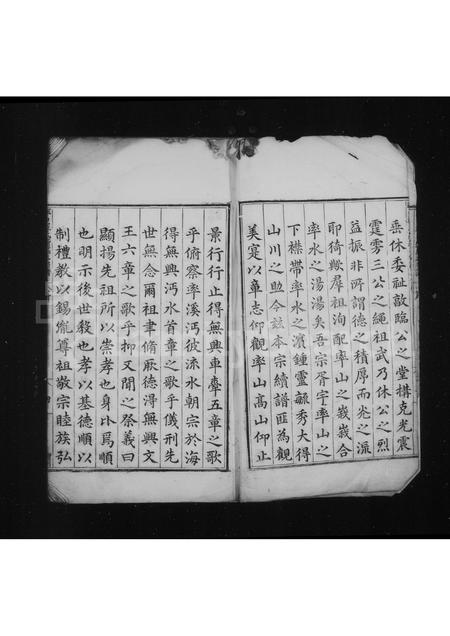 垂休委祉歆臨公之堂搆克光震
霆雱三公之繩祖武乃休公之烈
益振非所謂德之積厚而㳅之
耶猗歟羣祖洵配率山之峩峩合
率水之湯湯矣吾宗胥宇率山之
下襟帶率水之濱鍾靈毓秀大得
山川之助今茲本宗續譜匪為觀
美寔以萆志仰觀率山高山仰止
景行行止得無興車舝五章之歌
乎俯察率溪沔彼流水朝宗於海
得無興沔水首章之歌乎儀刑先
世無念爾祖聿脩厥德淂無興文
王六章之歌乎抑又聞之祭義曰
顯揚先祖所以崇孝也身比焉順
也明示後世教也孝以基德順以
制禮教以錫胤尊祖敬宗睦族弘